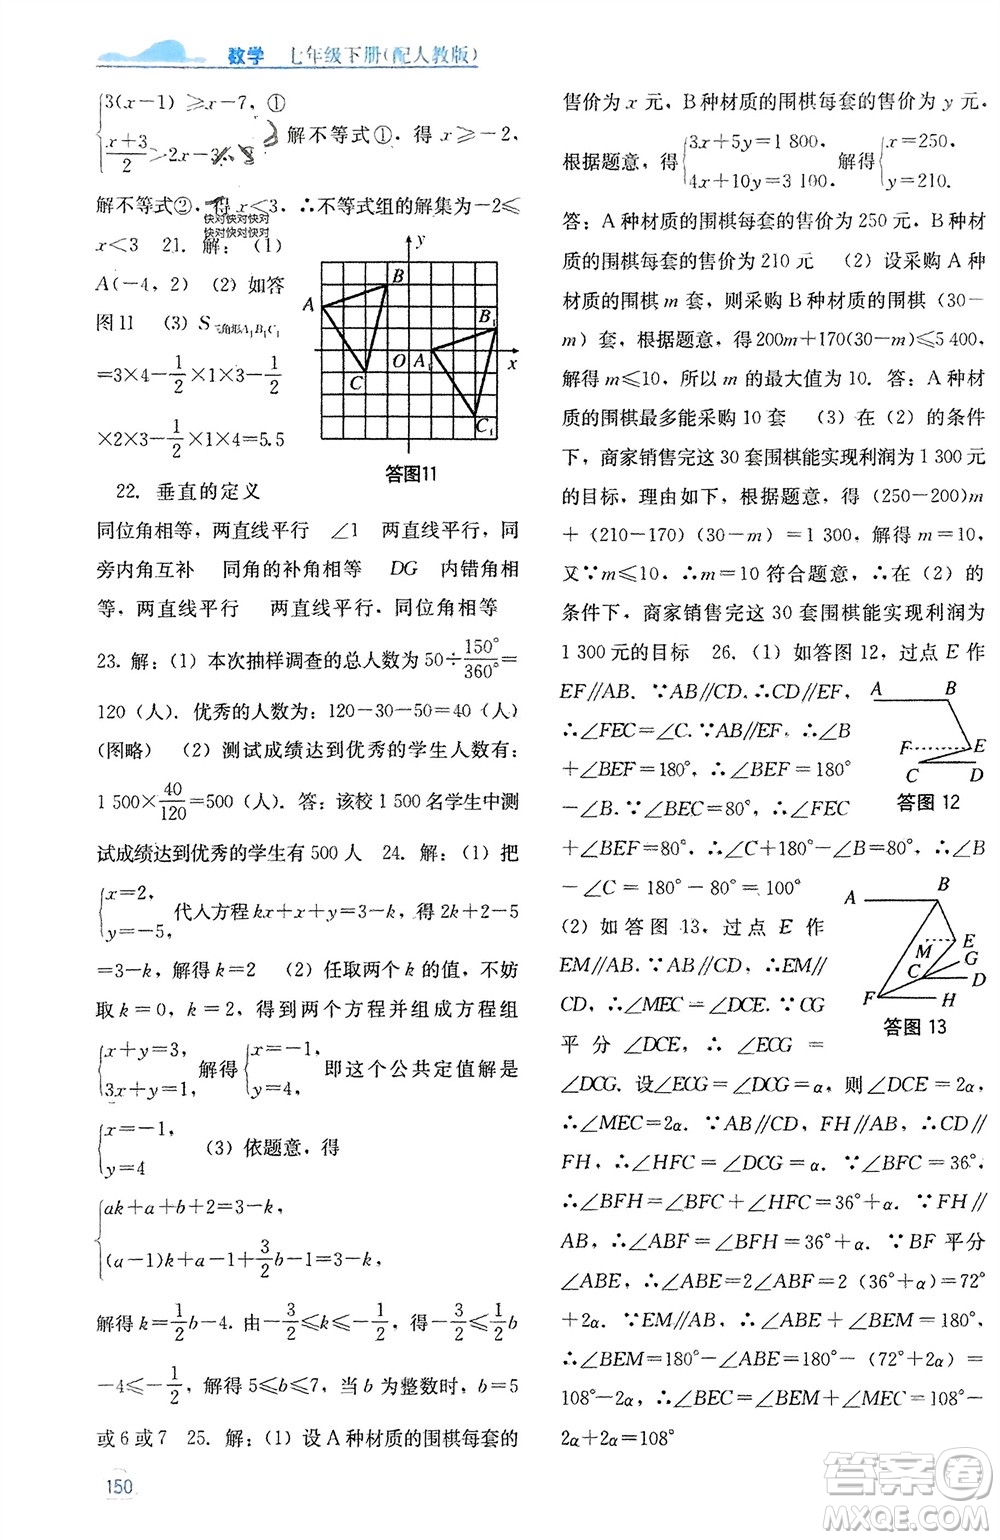 数学 七年级下册(配人教版)
{3(x-1)≥x-7, ①
x+3/2>2x-3, 解不等式①, 得 x≥-2,
解不等式②, 得 x<3, ∴不等式组的解集为-2≤
x<3 21. 解: (1)
A(-4, 2) (2) 如答
图11 (3) S三角形A₁B₁C₁
=3×4-1/2×1×3-1/2
×2×3-1/2×1×4=5.5
y
A B B₁ O A₁ x C C₁
答图11
22. 垂直的定义
同位角相等, 两直线平行 ∠1 两直线平行, 同
旁内角互补 同角的补角相等 DG 内错角相
等, 两直线平行 两直线平行, 同位角相等
23. 解: (1) 本次抽样调查的总人数为 50÷150°/360°=
120 (人). 优秀的人数为: 120-30-50=40 (人)
(图略) (2) 测试成绩达到优秀的学生人数有:
1 500×40/120=500 (人). 答: 该校 1 500 名学生中测
试成绩达到优秀的学生有 500 人 24. 解: (1) 把
{x=2,
y=-5, 代人方程 kx+x+y=3-k, 得 2k+2-5
=3-k, 解得 k=2 (2) 任取两个 k 的值, 不妨
取 k=0, 得到两个方程并组成方程组
{x+y=3,
3x+y=1, 解得{x=-1,
y=4, 即这个公共定值解是
{x=-1,
y=4 (3) 依题意, 得
{ak+a+b+2=3-k,
(a-1)k+a-1+3/2b-1=3-k,
解得 k=1/2b-4. 由-3/2≤k≤-1/2, 得-3/2≤1/2b
-4≤-1/2, 解得 5≤b≤7, 当 b 为整数时, b=5
或 6 或 7 25. 解: (1) 设 A 种材质的围棋每套的
150
售价为 x 元, B 种材质的围棋每套的售价为 y 元.
根据题意, 得{3x+5y=1 800,
4x+10y=3 100, 解得{x=250,
y=210.
答: A 种材质的围棋每套的售价为 250 元, B 种材
质的围棋每套的售价为 210 元 (2) 设采购 A 种
材质的围棋 m 套, 则采购 B 种材质的围棋 (30-
m) 套, 根据题意, 得200m+170(30-m)≤5 400,
解得 m≤10, 所以 m 的最大值为 10. 答: A 种材
质的围棋最多能采购 10 套 (3) 在 (2) 的条件
下, 商家销售完这 30 套围棋能实现利润为 1 300 元
的目标, 理由如下, 根据题意, 得 (250-200)m
+(210-170)(30-m)=1 300, 解得 m=10,
又∵m≤10, ∴m=10 符合题意, ∴在 (2) 的
条件下, 商家销售完这 30 套围棋能实现利润为
1 300 元的目标 26. (1) 如答图 12, 过点 E 作
EF//AB. ∵AB//CD, ∴CD//EF,
∴∠FEC=∠C. ∵AB//EF, ∴∠B
+∠BEF=180°, ∴∠BEF=180°
-∠B. ∵∠BEC=80°, ∴∠FEC
+∠BEF=80°, ∴∠C+180°-∠B=80°, ∴∠B
-∠C=180°-80°=100°
A B F E C D
答图 12
(2) 如答图 13, 过点 E 作
EM//AB. ∵AB//CD, ∴EM//
CD, ∴∠MEC=∠DCE. ∵CG
平分∠DCE, ∴∠ECG=
∠DCG. 设∠ECG=∠DCG=α, 则∠DCE=2α,
A B M E G C D F H
答图 13
∴∠MEC=2α. ∵AB//CD, FH//AB, ∴CD//
FH, ∴∠HFC=∠DCG=α. ∵∠BFC=36°,
∴∠BFH=∠BFC+∠HFC=36°+α. ∵FH//
AB, ∴∠ABF=∠BFH=36°+α. ∵BF 平分
∠ABE, ∴∠ABE=2∠ABF=2 (36°+α)=72°
+2α. ∵EM//AB, ∴∠ABE+∠BEM=180°,
∴∠BEM=180°-∠ABE=180°-(72°+2α)=
108°-2α, ∴∠BEC=∠BEM+∠MEC=108°-
2α+2α=108°
快对快对快对
快对快对快对
答案圈
MXQE.COM